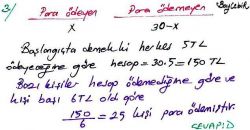 3/ Para ödeyen Para ödemeyen Böylelik
x 30-x
Başlangıçta demekki herkes 5TL
ödeyeceğine göre hesap = 30.5 = 150TL
Bazı kişiler hesap ödemediğine göre ve
kişi başı 6TL old göre
150/6 = 25 kişi para ödemiştir.
CEVAP: D